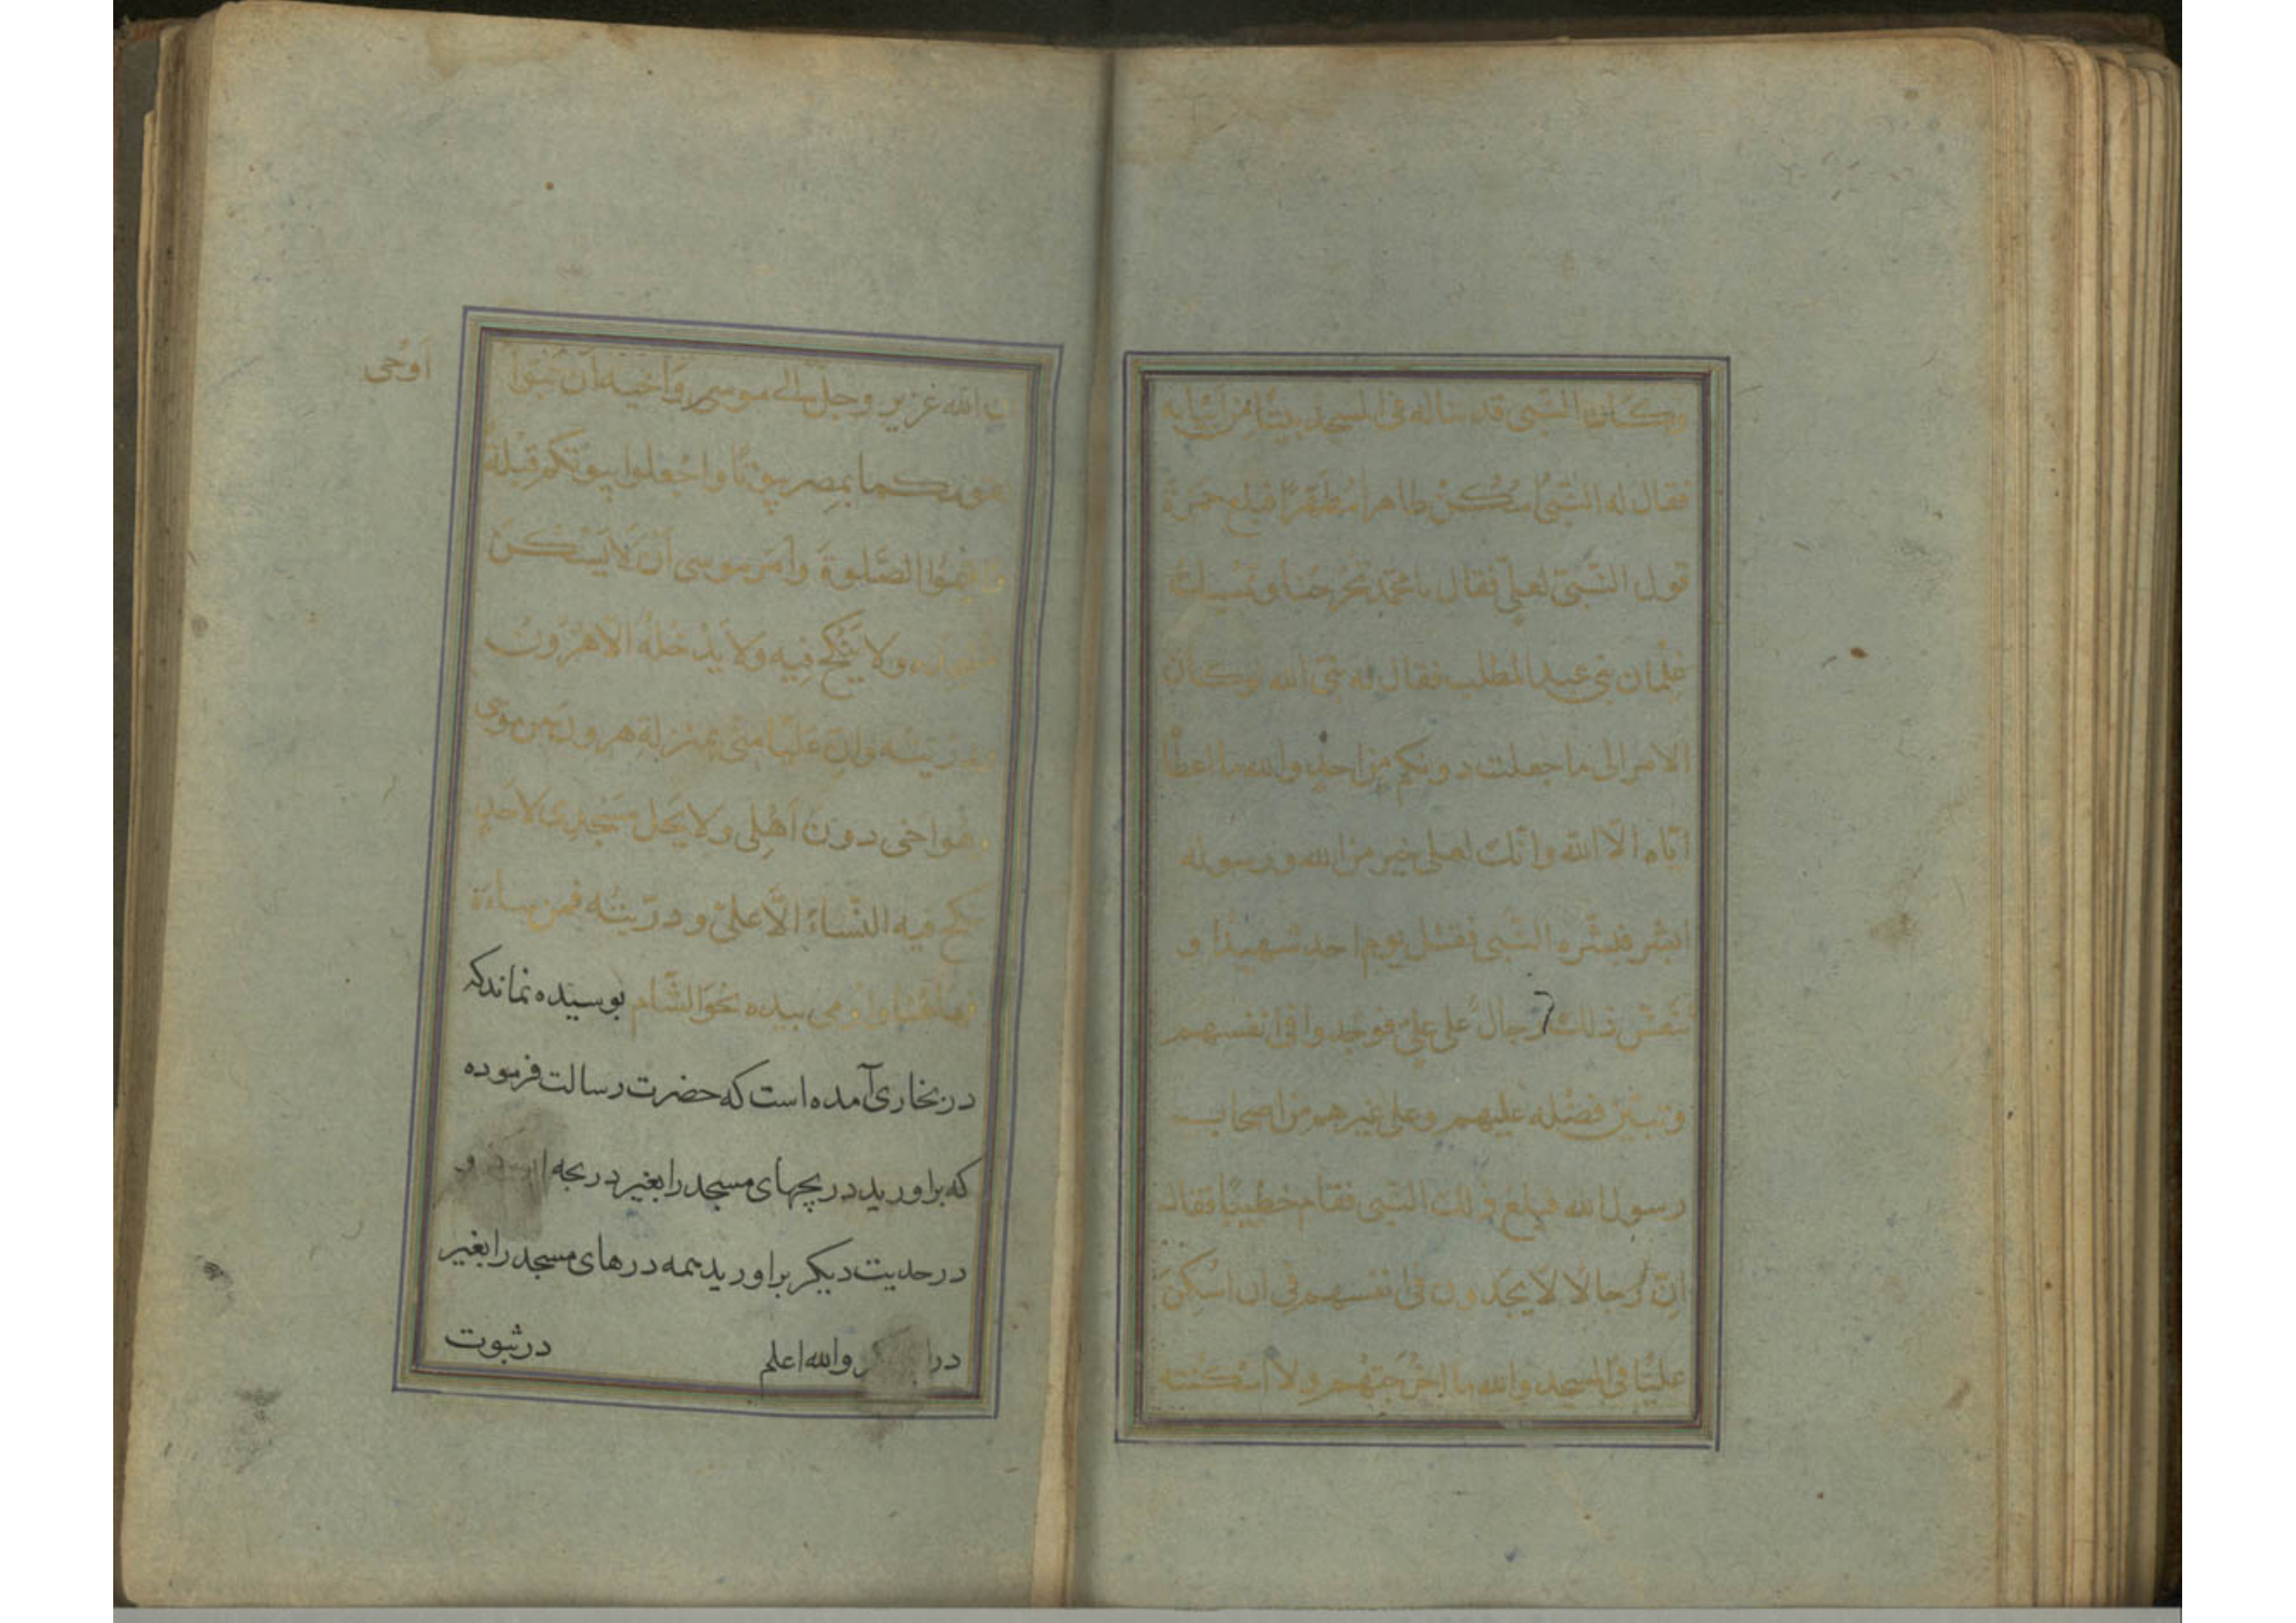 وكان النبى قد بنا له فى المسجد بيتًا من ابياته
فقال له النبىُّ اسْكُنْ طاهرا مُطهّرًا فبلغ حمزة
قول النّبىّ لعلىٍّ فقال يا محمّد تخرجنا وتمسك
غِلْمان بنى عبد المطلب فقال له نبىّ الله لو كان
الامر الى ما جعلت دونكم من احدٍ والله ما اعطا
ايّاه الّا الله وانّك لعلى خير من الله ورسوله
ابشر فبشّره النّبى فقتل يوم احد شهيدًا و
نفس ذلك رجالٌ على علىٍّ فوجدوا فى انفسهم
وتبيّن فضله عليهم وعلى غيرهم من اصحاب
رسول الله فبلغ ذلك النّبى فقام خطيبًا فقال
اِنّ رجالا لَا يجدون فى انفسهم فى ان اسكن
عليًّا فى المسجد والله ما اخْرَجْتهم ولا اسكنته
اَوْحى
الله عزيز وجلّ الى موسى وَاخيه اَن تبوا
لقومكما بمصر بيوتًا واجعلوا بيوتكم قبلةً
واقيموا الصّلوة وَاَمَر موسى اَنْ لَا يَسْكنَ
مسجده ولا ينكح فيه ولا يَدْخلهُ الّا هرون
وذرّيته وانّ عَليًّا منّى بمنزلة هرون من موسى
وهو اخى دون اَهْلى ولا يحلّ مَسْجدى لاحدٍ
ينكح فيه النّساءَ الّا علىّ وذرّيته فمن ساءَهُ
فهاهُنا واومى بيده نحوَ الشّام بوسيده نماند كه
در بخارى آمده است كه حضرت رسالت فرموده
كه براوريد دريچهاى مسجد را بغير دريجه و
در حديت ديكر براوريد همه درهاى مسجد را بغير
در والله اعلم در ثبوت